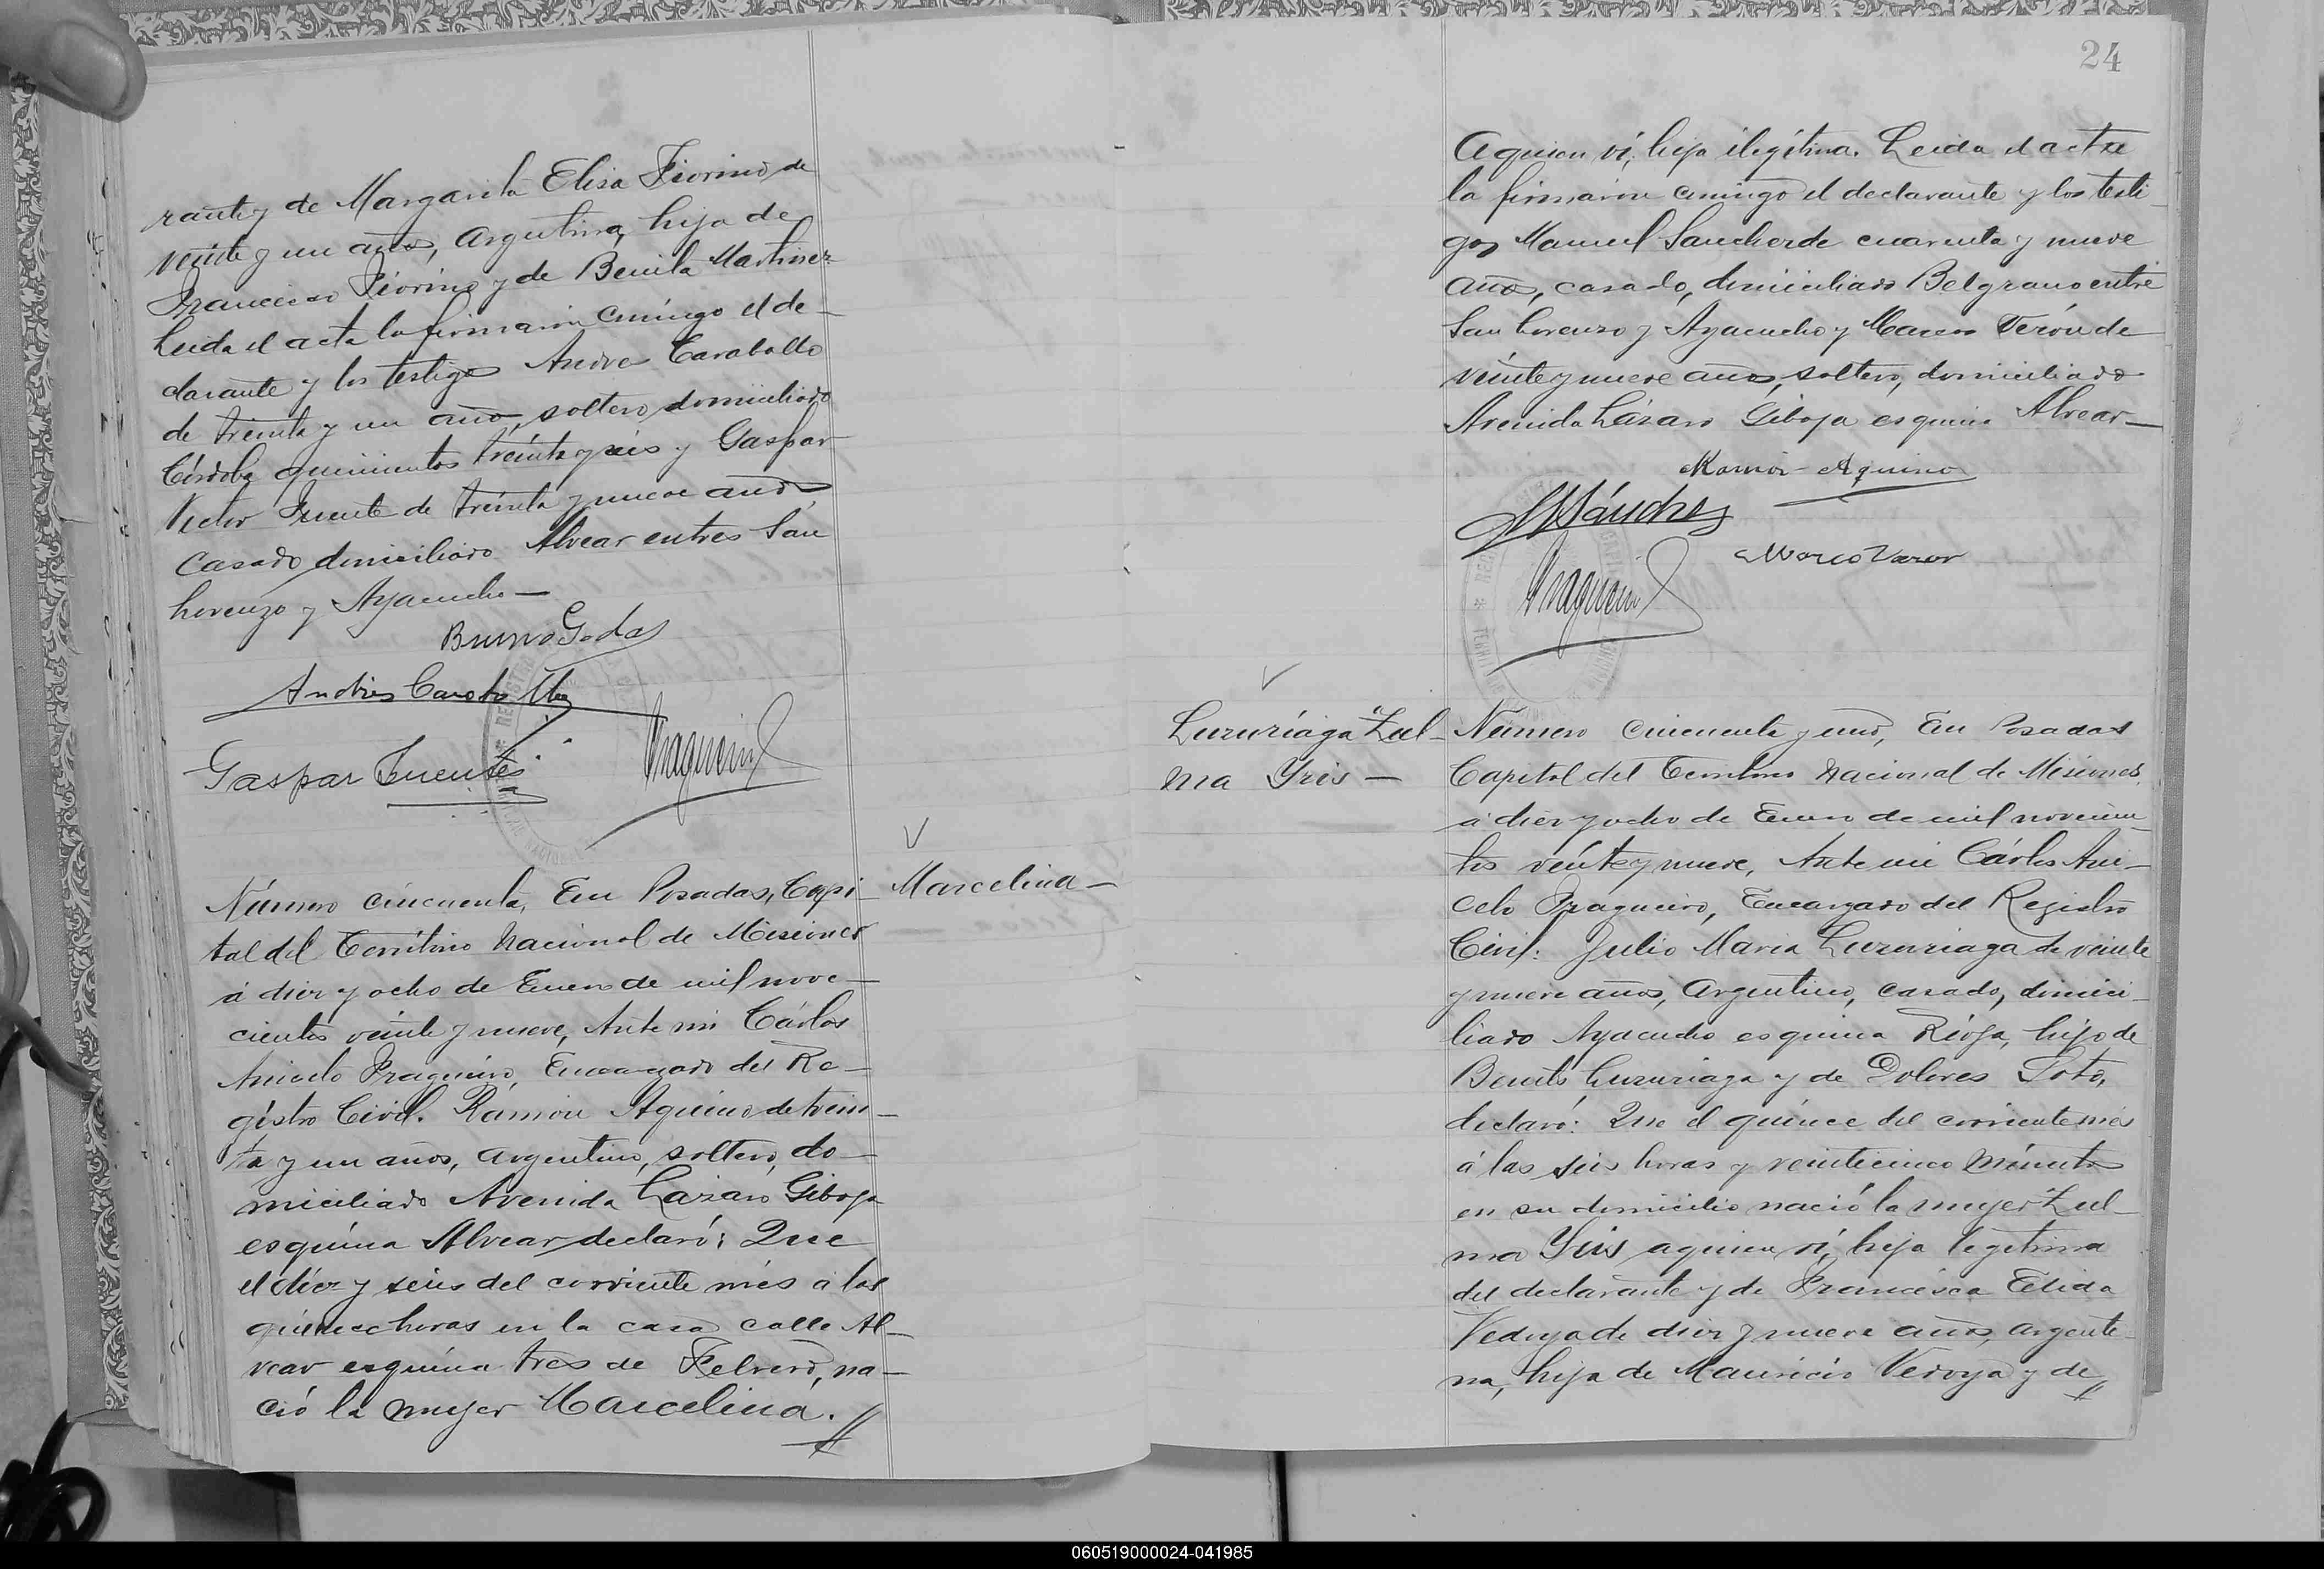 rante y de Margarita Elisa Fiorino de
veinte y un años, argentina, hija de
Francisco Fiorino y de Benita Martinez
Leida el acta la firmaron conmigo el de-
clarante y los testigos Andres Caraballo
de treinta y un año, soltero, domiciliado
Córdoba quinientos treinta y seis y Gaspar
Victor Fuente de treinta y nueve años
casado domiciliado Alvear entres San
Lorenzo y Ayacucho—
Bruno Godoy
Andres Caraballo
Gaspar Fuentes
Número cincuenta, En Posadas, Capi-
Marcelina—
tal del Territorio Nacional de Misiones
á diez y ocho de Enero de mil nove-
cientos veinte y nueve, Ante mi Cárlos
Aniceto Fragueiro, Encargado del Re-
gistro Civil. Ramón Aquino de trein-
ta y un años, argentino, soltero, do-
miciliado Avenida Lazaro Giboja
esquina Alvear declaró: Que
el diez y seis del corriente més á las
quince horas en la casa calle Al-
vear esquina tres de Febrero, na-
ció la mujer Marcelina.
24
Aquien ví, hija ilegítima. Leida el acta
la firmaron conmigo el declarante y los testi-
gos Manuel Sanchez de cuarenta y nueve
años, casado, domiciliado Belgrano entre
San Lorenzo y Ayacucho y Marcos Verón de
veinte y nueve años, soltero, domiciliado
Avenida Lázaro Giboja esquina Alvear—
Ramón Aquino
M Sánchez
Marco Veron
Luzuriaga Zul-
ma Yris—
Número cincuenta y uno, En Posadas
Capital del Territorio Nacional de Misiones
á diez y ocho de Enero de mil novecien-
tos veinte y nueve, Ante mi Cárlos Ani-
ceto Fragueiro, Encargado del Registro
Civil: Julio Maria Luzuriaga de veinte
y nueve años, argentino, casado, domici-
liado Ayacucho esquina Rioja, hijo de
Benito Luzuriaga y de Dolores Soto,
declaró: Que el quince del corriente més
á las seis horas y veinticinco minutos
en su domicilio nació la mujer Zul-
ma Yris aquien ví, hija legitima
del declarante y de Francisca Elida
Vedoya de diez y nueve años, argenti-
na, hija de Mauricio Vedoya y de
060519000024-041985